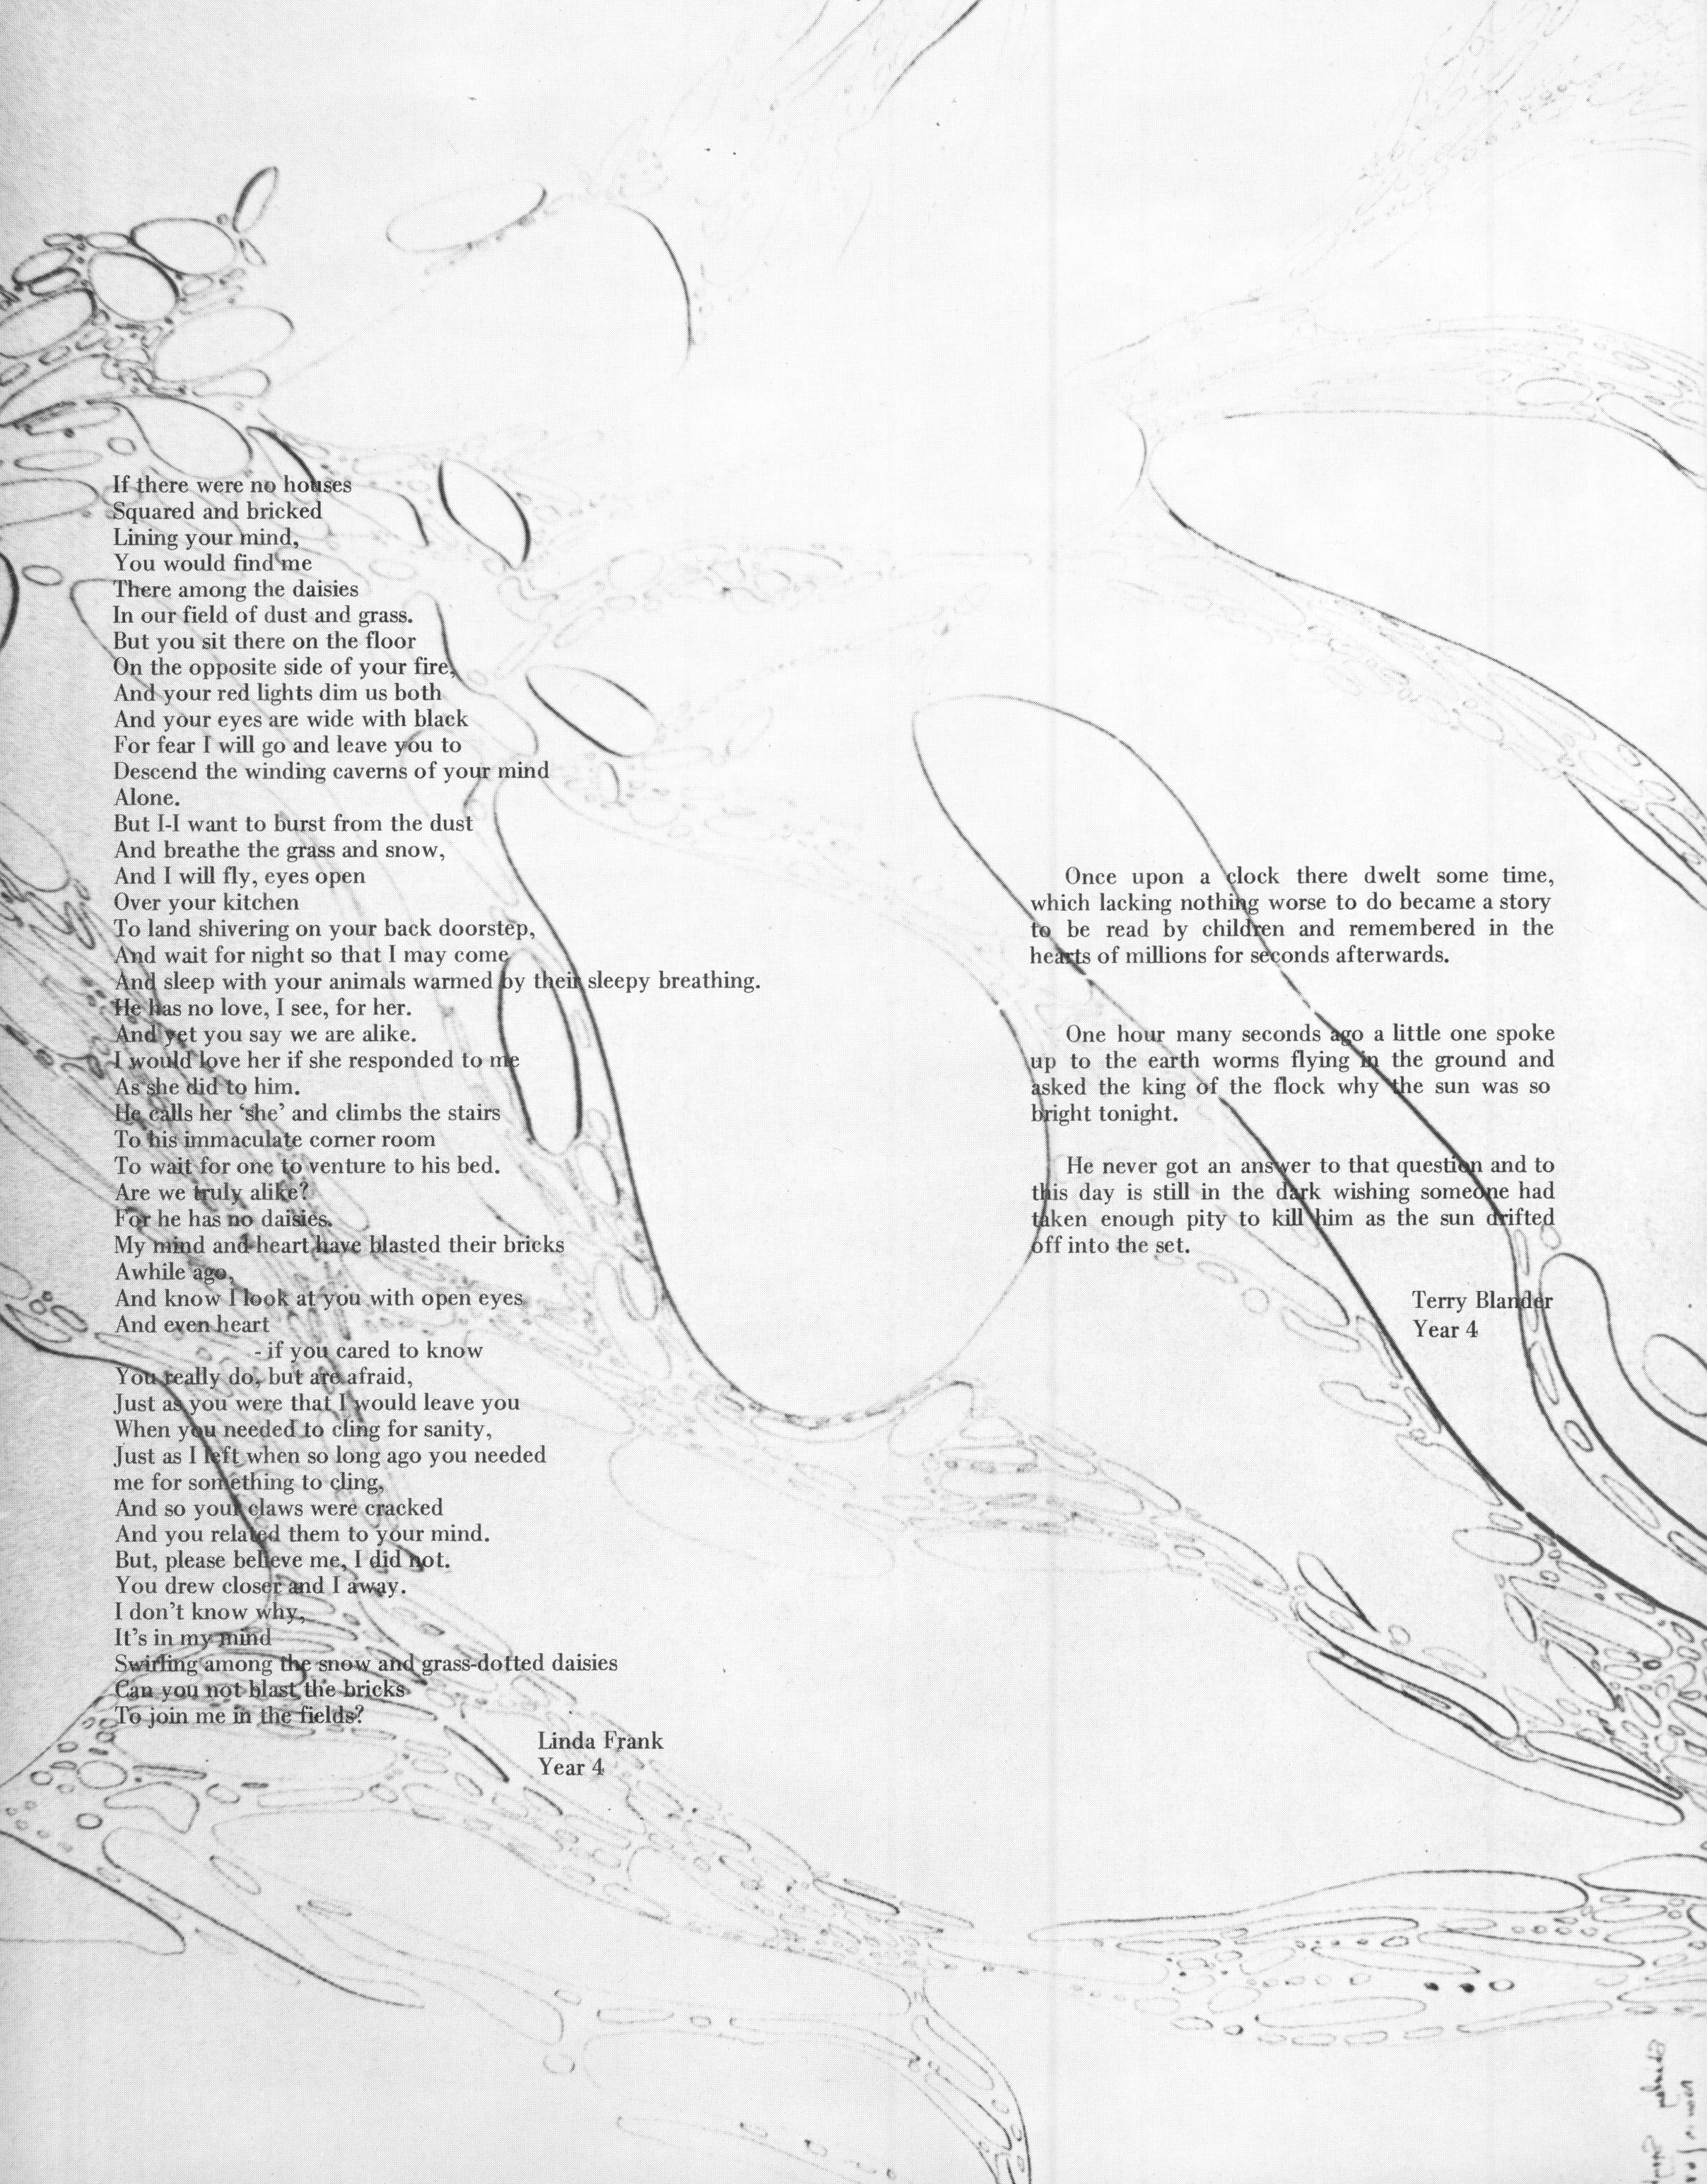 If there were no houses
Squared and bricked
Lining your mind,
You would find me
There among the daisies
In our field of dust and grass.
But you sit there on the floor
On the opposite side of your fire,
And your red lights dim us both
And your eyes are wide with black
For fear I will go and leave you to
Descend the winding caverns of your mind
Alone.
But I-I want to burst from the dust
And breathe the grass and snow,
And I will fly, eyes open
Over your kitchen
To land shivering on your back doorstep,
And wait for night so that I may come
And sleep with your animals warmed by their sleepy breathing.
He has no love, I see, for her.
And yet you say we are alike.
I would love her if she responded to me
As she did to him.
He calls her ‘she’ and climbs the stairs
To his immaculate corner room
To wait for one to venture to his bed.
Are we truly alike?
For he has no daisies.
My mind and heart have blasted their bricks
Awhile ago,
And know I look at you with open eyes
And even heart
- if you cared to know
You really do, but are afraid,
Just as you were that I would leave you
When you needed to cling for sanity,
Just as I left when so long ago you needed
me for something to cling,
And so your claws were cracked
And you related them to your mind.
But, please believe me, I did not.
You drew closer and I away.
I don’t know why,
It’s in my mind
Swirling among the snow and grass-dotted daisies
Can you not blast the bricks
To join me in the fields?
Linda Frank
Year 4
Once upon a clock there dwelt some time,
which lacking nothing worse to do became a story
to be read by children and remembered in the
hearts of millions for seconds afterwards.
One hour many seconds ago a little one spoke
up to the earth worms flying in the ground and
asked the king of the flock why the sun was so
bright tonight.
He never got an answer to that question and to
this day is still in the dark wishing someone had
taken enough pity to kill him as the sun drifted
off into the set.
Terry Blander
Year 4